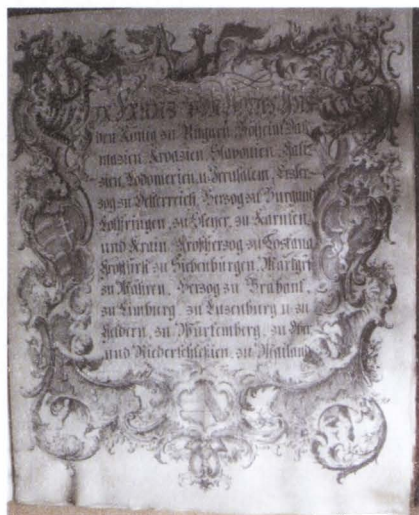 den König zu Ungarn, Böheim, Dal-
mazien, Kroazien, Slavonien, Gali-
zien, Lodomerien, u. Jerusalem, Erzher-
zog zu Oesterreich, Herzog zu Burgund
Lothringen, zu Steyer, zu Kärnten,
und Krain, Großherzog zu Toskana
Großfürst zu Siebenbürgen, Markgraf
zu Mähren, Herzog zu Brabant,
zu Limburg, zu Luxenburg u. zu
Geldern, zu Würtemberg, zu Ober
und Niederschlesien, zu Mailand